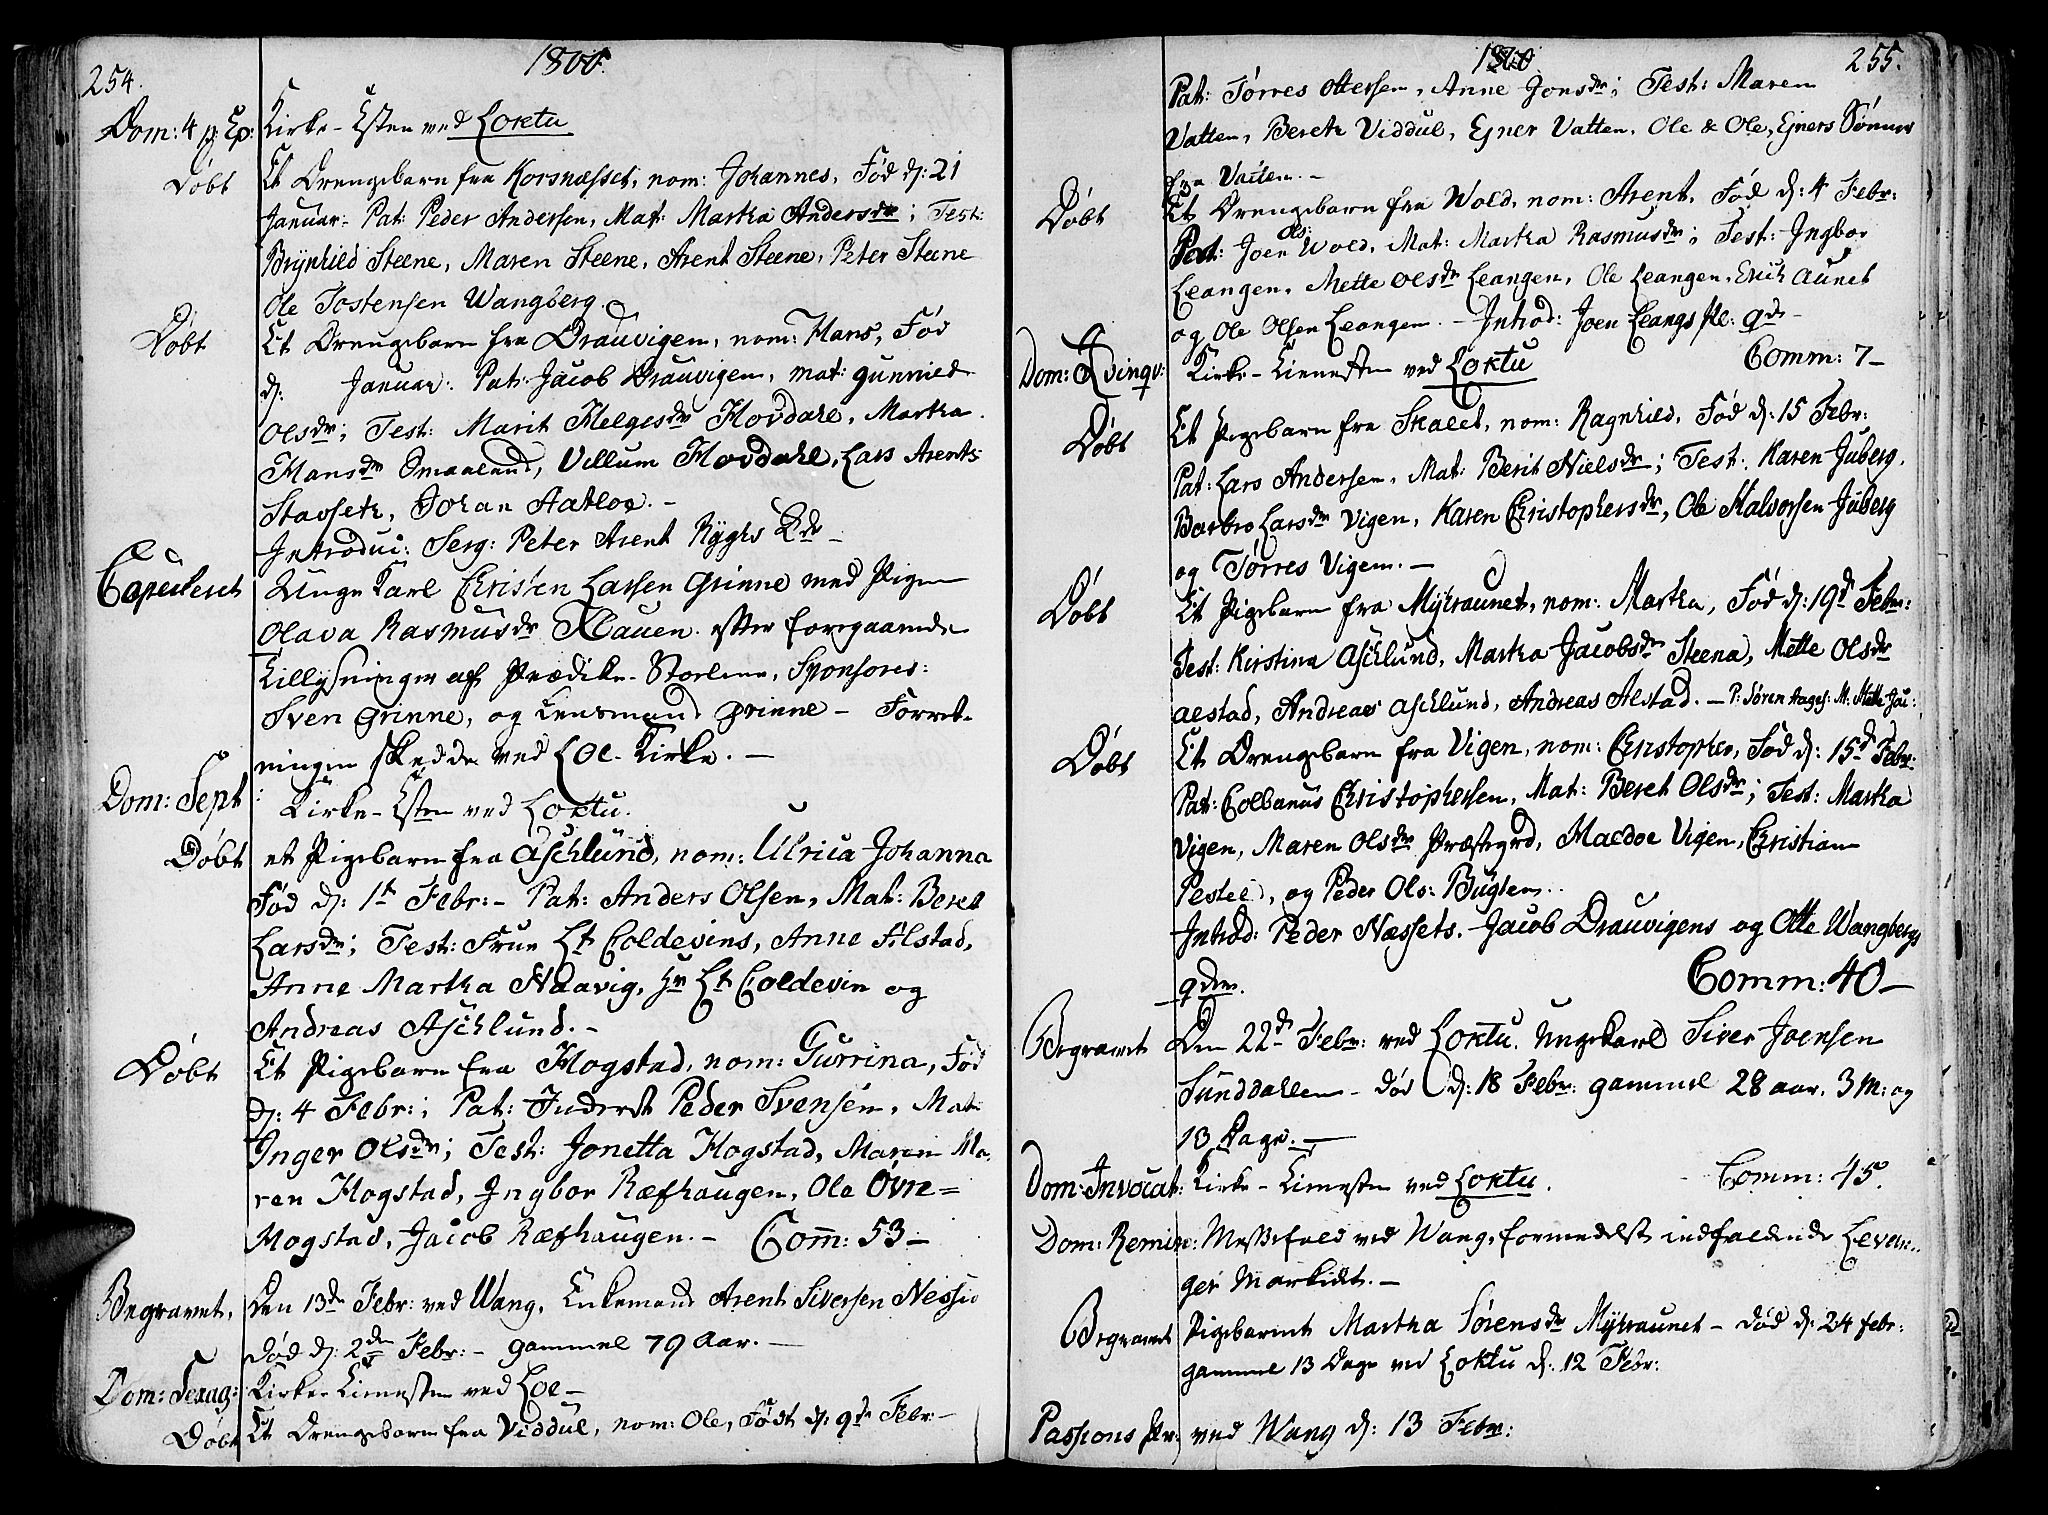 254.
1800.
Dom: 4 p: Ep: Kirke-Esten ved Loktu
Døbt Et Drengebarn fra Korsnæsset, nom: Johannes, Fød d: 21
Januar- Pat: Peder Andersen, Mat: Martha Andersdr; Test:
Brynhild Steene, Maren Steene, Arent Steene, Peter Steene
Ole Tostensen Wangberg.
Døbt Et Drengebarn fra Drauvigen, nom: Hans, Fød
d: Januar: Pat: Jacob Drauvigen, mat: gunnild
Olsdr; Test: Marit Helgesdr Hovdahl, Martha
Hansdr Smaaland, Villum Hovdahl, Lars Arents
Stavseth, Johan Aatloe.-
Introdui: Serg: Peter Arent Ryghs Qde-
Copuleret Unge Karl Christen Larsen Grinne med Pigen
Olava Rasmusdr Xauen. efter foregaaende
Tillysninger af Prædike-Stolene, Sponsores:
Sven Grinne, og Lensmand Grinne- Forret-
ningen skedde ved Loe-Kirke.-
Dom: Sept: Kirke-Esten ved Loktu.
Døbt et Pigebarn fra Aschlund, nom: Ulrica Johanna
Fød d: 1t Febr:- Pat: Anders Olsen, Mat: Beret
Larsdr; Test: Frue Lt Coldevins, Anne Filstad,
Anne Martha Haavig, Hr Lt Coldevin og
Andreas Aschlund.-
Døbt Et Pigebarn fra Hogstad, nom: Gurrina, Fød
d: 4 Febr:; Pat: Inderst Peder Svensen, Mat:
Inger Olsdr; Test: Jonetta Hogstad, Maren Ma-
ren Hogstad, Ingbor Ræfhaugen, Ole Øvre=
Hogstad, Jacob Ræfhaugen.- Com: 53-
Begravet, Den 13de Febr: ved Wang, Enkemand Arent Siversen Nessio
død d: 2den Febr:- gammel 79 Aar.-
Dom: Sexag: Kirke-Tienesten ved Loe-
Døbt Et Drengebarn fra Viddul, nom: Ole, Født d: 9de Febr:-
1800
255.
Pat: Tørres Ottersen, Anne Jonsdr; Test: Maren
Vatten, Bereth Viddul, Ejner Vatten, Ole & Ole, Ejners Sønner
fra Vatten.-
Døbt Et Drengebarn fra Wold, nom: Arent, Fød d: 4 Febr:
Pat: Joen Ols: Wold, Mat: Martha Rasmusdr; Test: Ingbor
Leangen, Mette Olsdr Leangen, Ole Leangen, Erich Aunet
og Ole Olsen Leangen.- Introd: Joen Leangs Pl: qde-
Dom: Qvinqv: Kirke-Tienesten ved Loktu Comm: 7-
Døbt Et Pigebarn fra Skalet, nom: Ragnhild, Fød d: 15 Febr:
Pat: Lars Andersen, Mat: Berit Nielsdr; Test: Karen Juberg,
Barbro Larsdr Vigen, Karen Christophersdr, Ole Halvorsen Juberg
og Tørres Vigen.-
Døbt Et Pigebarn fra Mykraunet, nom: Martha, Fød d: 19d Febr:
Test: Kirstina Aschlund, Martha Jacobsdr Steena, Mette Olsdr
Alstad, Andreas Aschlund, Andreas Alstad.- P: Søren Aages: M: Mette Jac:
Døbt Et Drengebarn fra Vigen, nom: Christopher, Fød d: 15d Febr:
Pat: Colbanus Christophersen, Mat: Beret Olsdr; Test: Martha
Vigen, Maren Olsdr Præstegrd, Maldoe Vigen, Christian
, og Peder Ols: Bugten.
Introd: Peder Næssets, Jacob Drauvigens og Otte Wangbergs
qdrr. Comm: 40-
Begravet Den 22de Febr: ved Loktu. Ungekarl Siver Joensen
Sunddallen- død d: 18 Febr: gammel 28 aar, 3 M: og
13 Dage.-
Dom: Invocat: Kirke-Tienesten ved Loktu. Comm: 45.
Dom: Remin: Messefald ved Wang, formedelst indfaldende Levan-
ger Markidt.-
Begravet Pigebarnet Martha Sørensdr Mykraunet- død d: 24 febr:
gammel 13 Dage ved Loktu d: 12 Febr:
Passions Pr: ved Wang d: 13 Febr: